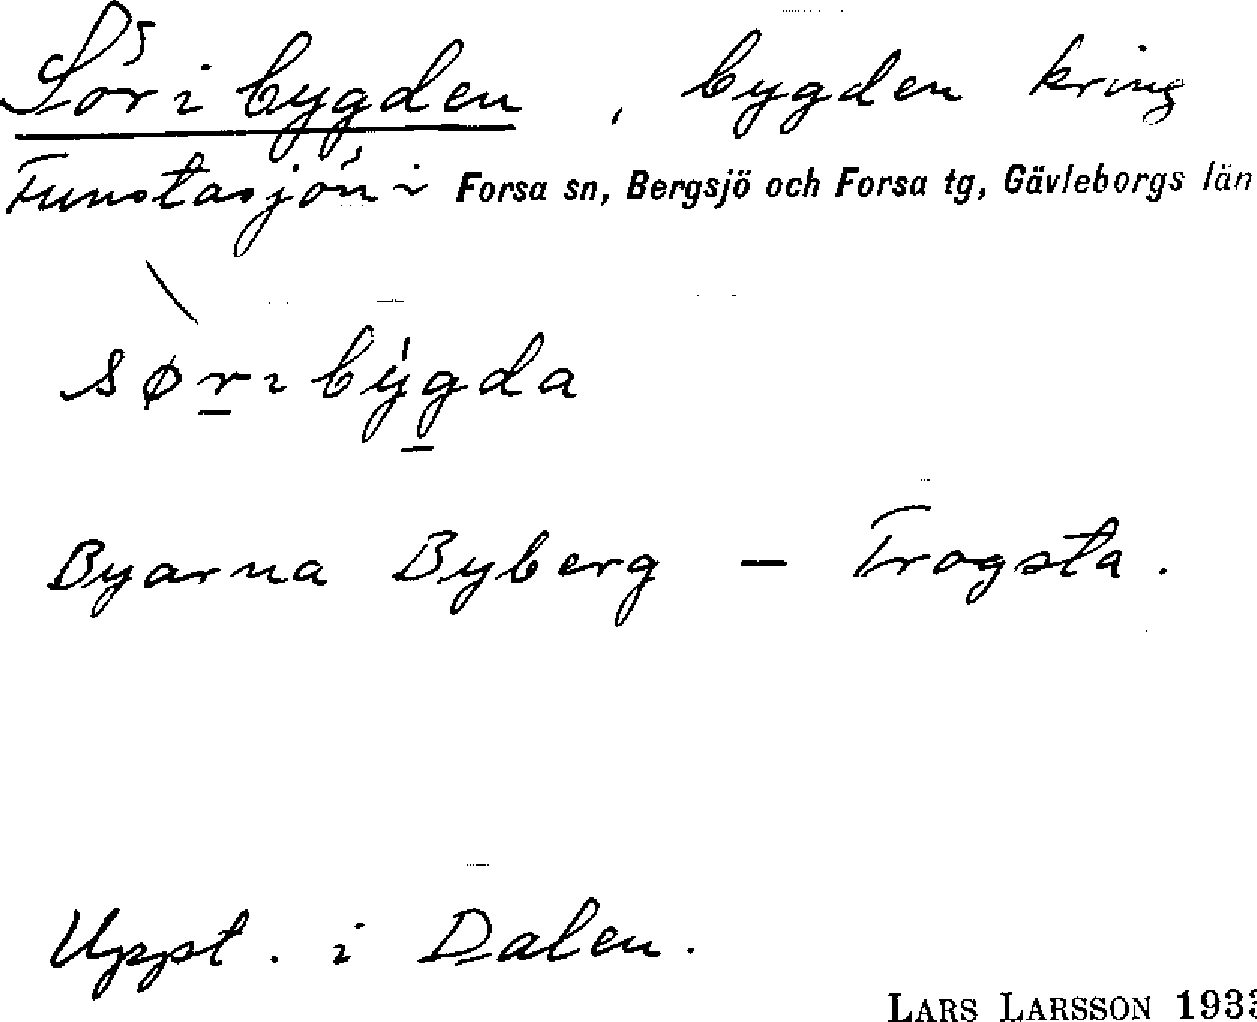 Sör i bygden, bygden kring
Funstasjön i Forsa sn, Bergsjö och Forsa tg, Gävleborgs län
sørı býgda
Byarna Byberg – Trogsta.
Uppt. i Dalen.
LARS LARSSON 1933